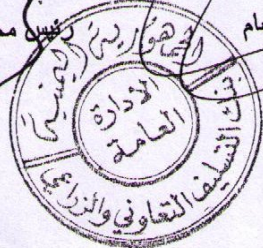 رئيس
الجمهورية اليمنية
الإدارة
العامة
بنك التسليف التعاوني والزراعي